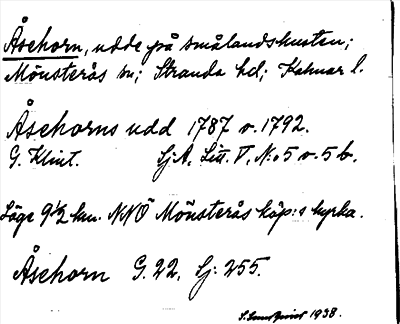 Åsehorn, udde på smålandskusten;
Mönsterås sn; Stranda hd; Kalmar l.
Åsehorns udd 1787 o. 1792.
G. Klint. Sj.A. Litt. V, N:o 5 o. 5 b.
Läge 9 1/2 km. NNÖ Mönsterås köp:s kyrka.
Åsehorn G. 22. Sj: 255.
1938.